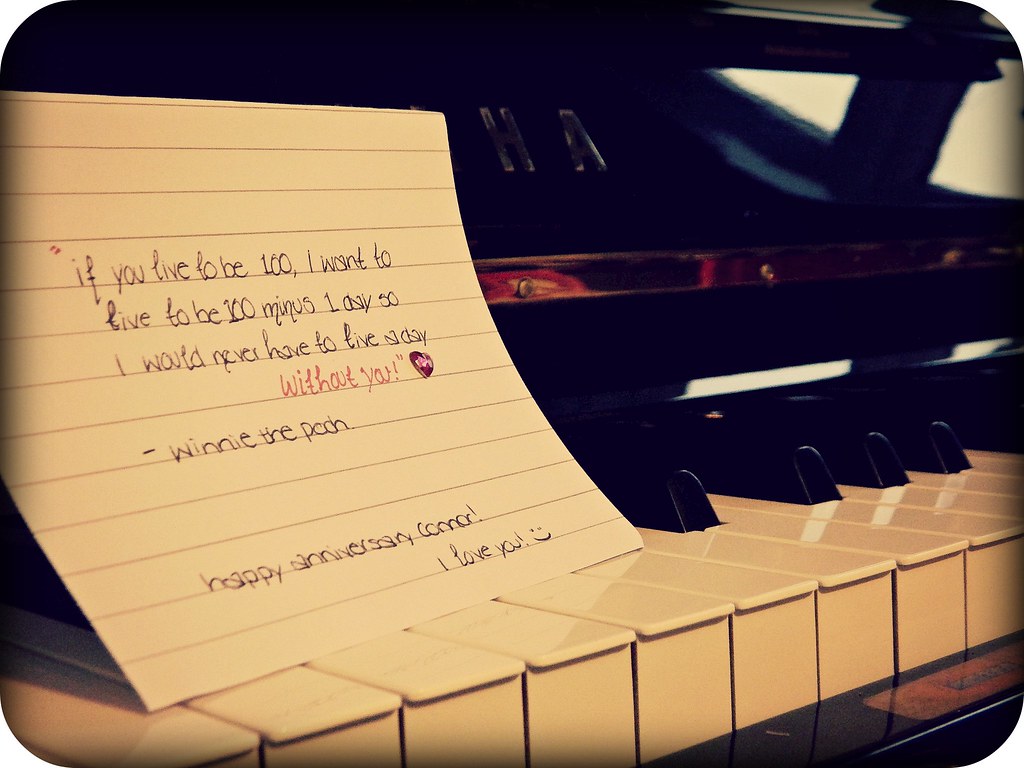 HA
"if you live to be 100, I want to
live to be 100 minus 1 day so
I would never have to live a day
without you!"
- Winnie the pooh
happy anniversary Connor!
i love you! :)